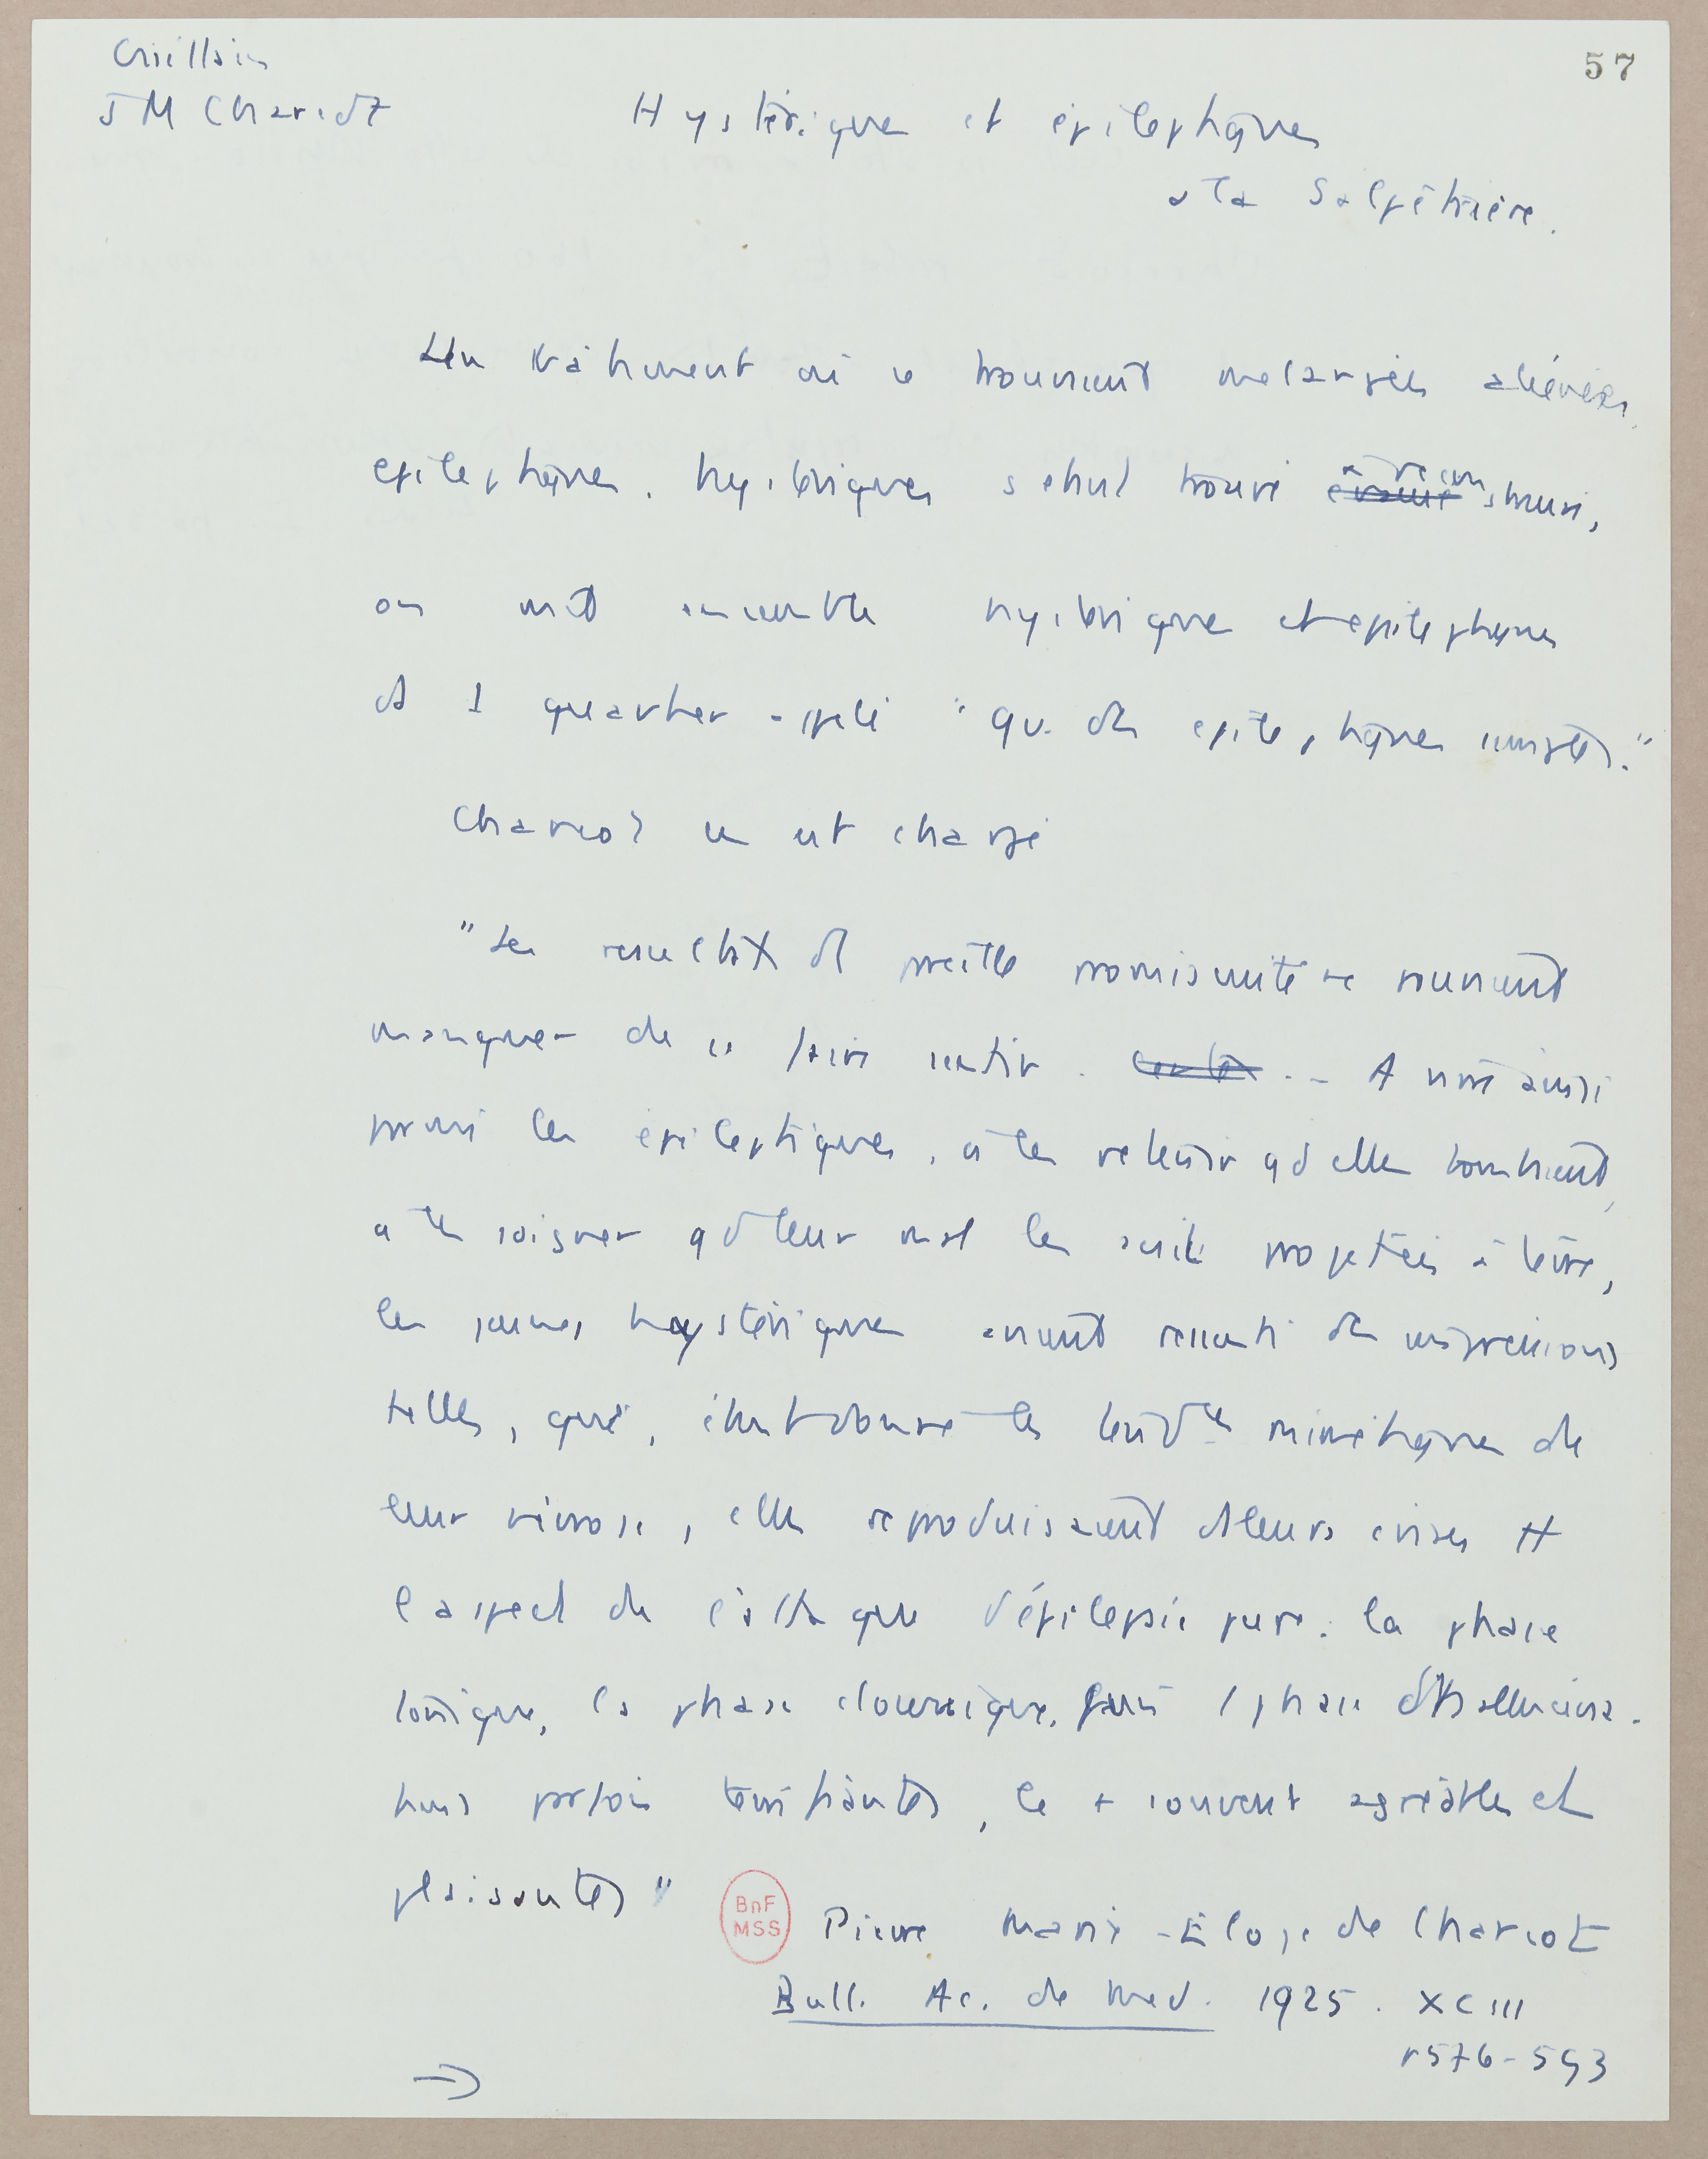 Guillain
57
J M Charcot
Hystériques et épileptiques
à la Salpêtrière.
Un bâtiment où se trouvaient melangées aliénées,
epileptiques, hysteriques s'etant trouvé à reconstruire,
on mit ensemble hysteriques et epileptiques
ds 1 quartier appelé "qu. des epileptiques simples."
Charcot en est chargé
"Les resultats de pareille promiscuité ne pouvaient
manquer de se faire sentir. .- A vivre ainsi
parmi les épileptiques, à les retenir qd elles tombaient,
à les soigner qd leur mal les avait projetées à terre,
les jeunes hystériques avaient ressenti des impressions
telles, que, étant donné les tendces mimétiques de
leur névrose, elles reproduisaient ds leurs crises tt
l'aspect de l'attaque d'épilepsie pure. la phase
tonique, la phase clownique, puis 1 phase d'hallucina-
tions parfois terrifiantes, le + souvent agréables et
plaisantes"
BnF
MSS
Pierre Marie - Eloge de Charcot
Bull. Ac. de Med. 1925. XCIII
p576-593
→